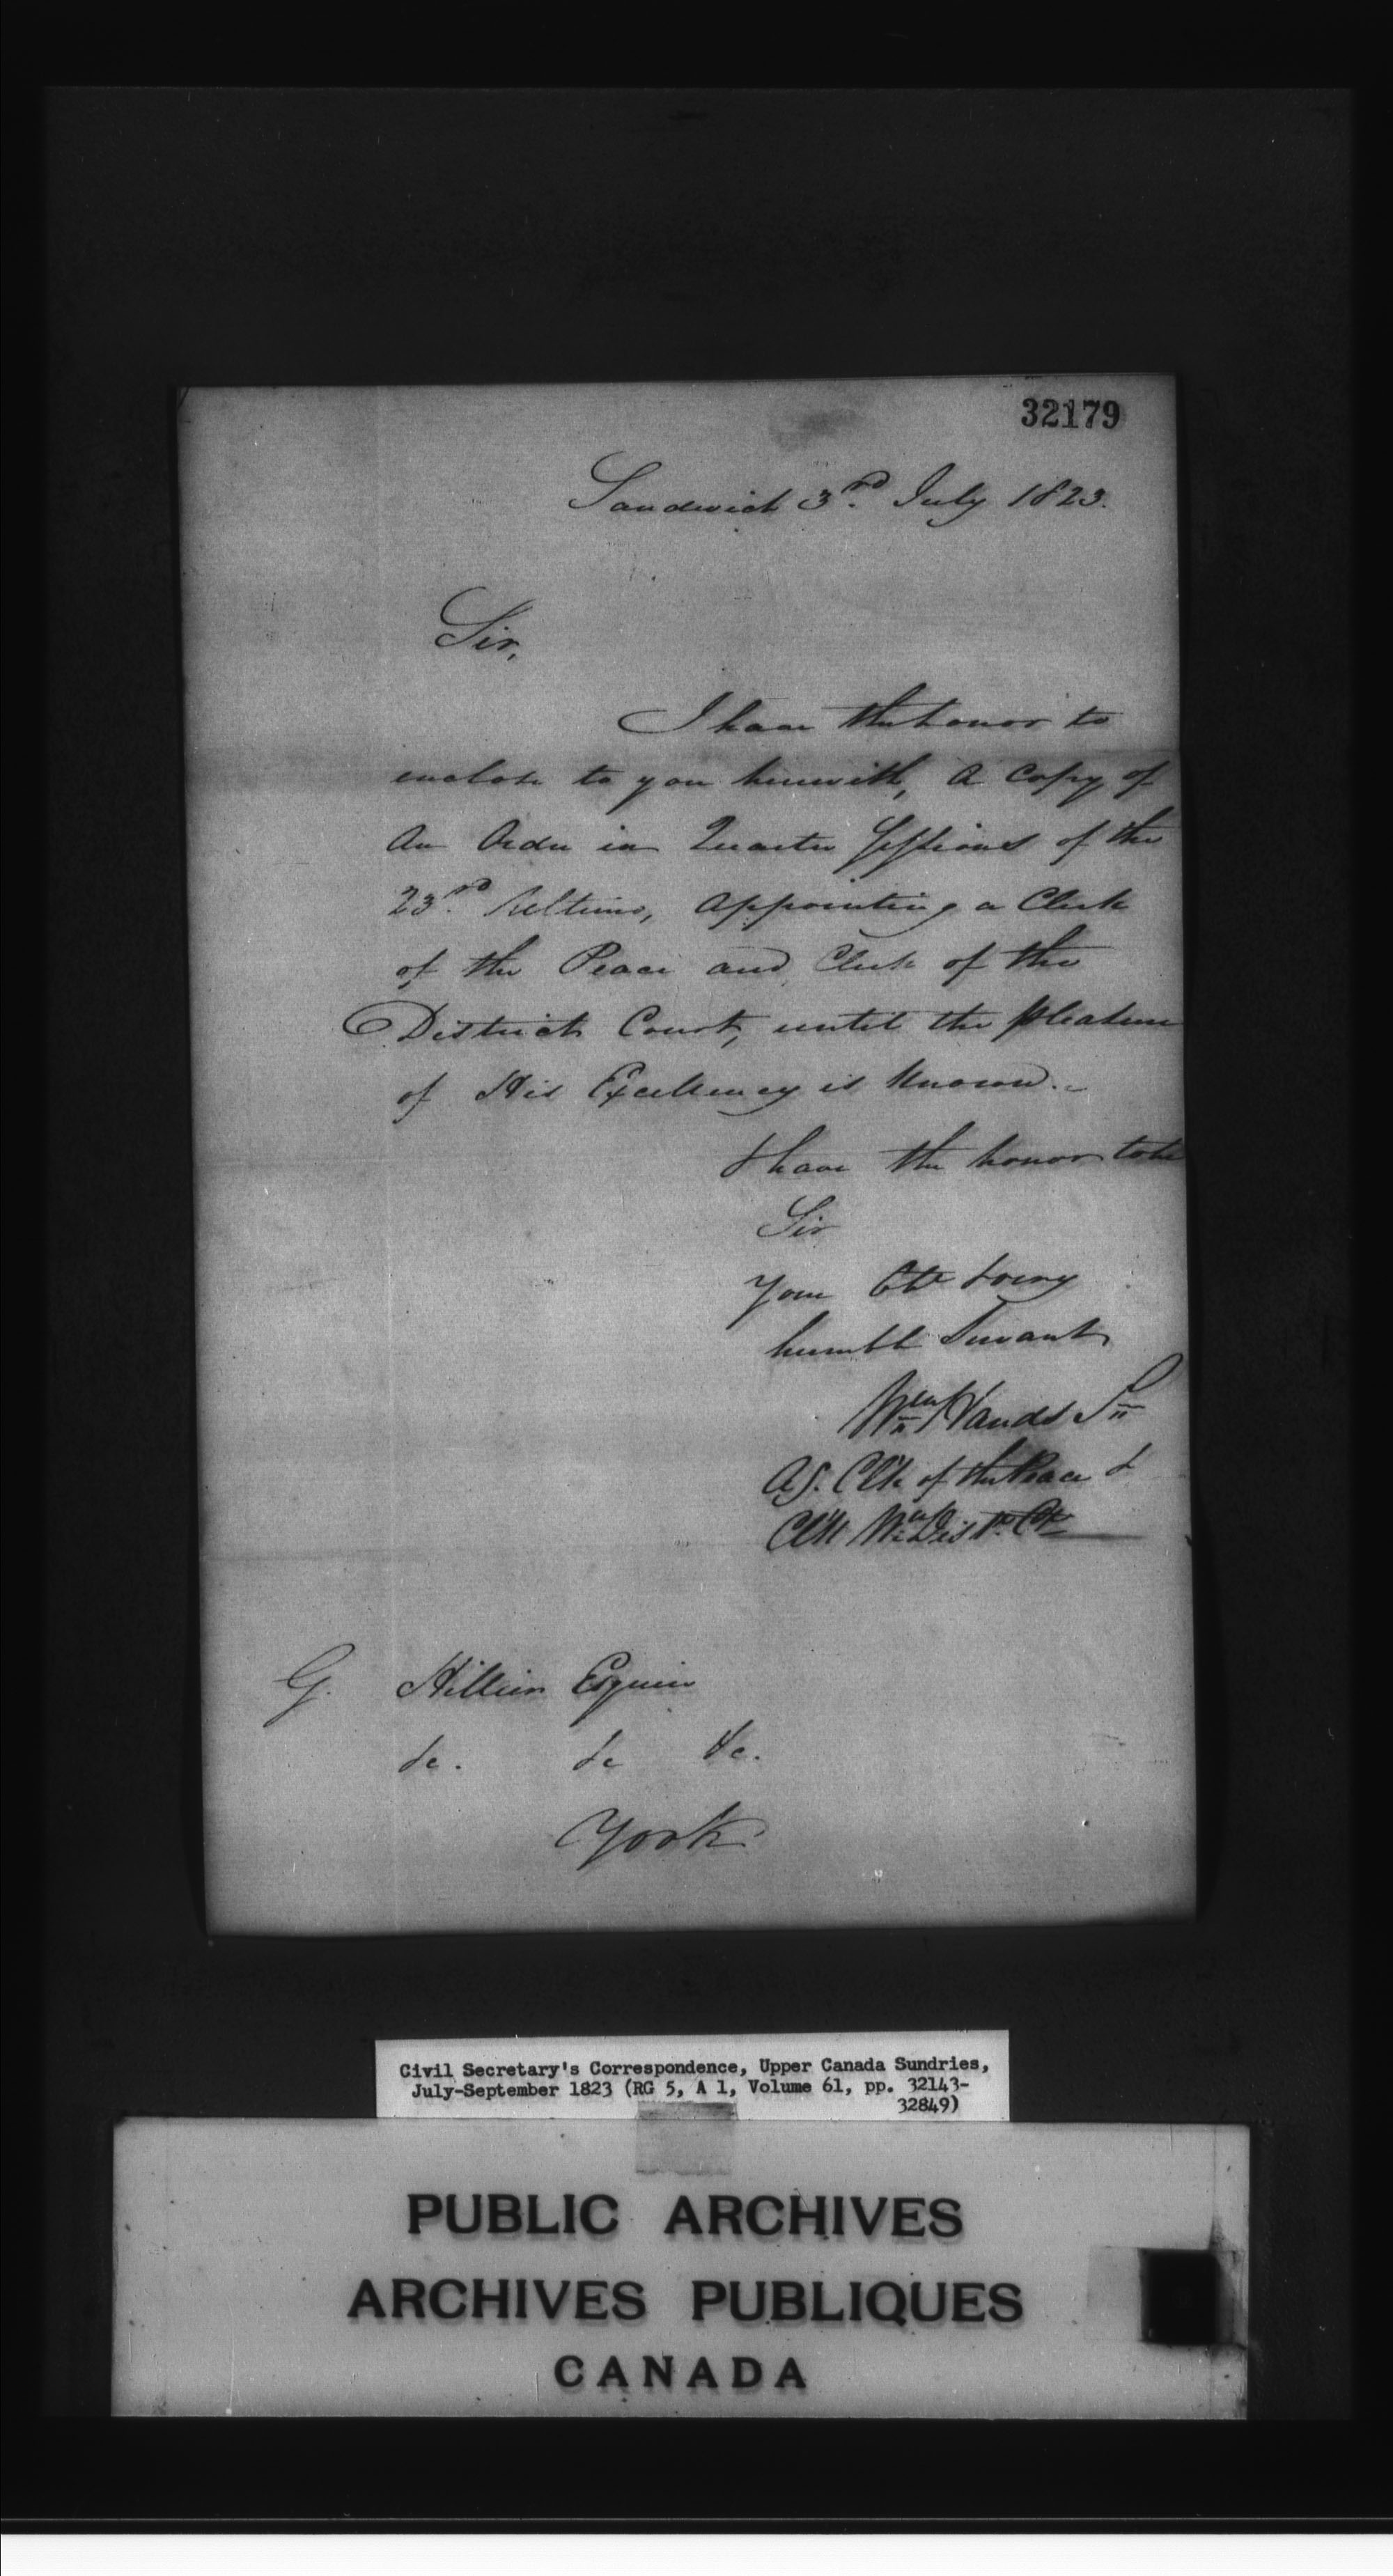 32179
Sandwich 3rd. July 1823.
Sir,
I have the honor to
enclose to you herewith, a Copy of
an Order in Quarter Sessions of the
23rd. Ultimo, appointing a Clerk
of the Peace and Clerk of the
District Court, until the pleasure
of His Excellency is known.
I have the honor to be
Sir
Your Obt & very
humble Servant
Wm Hands Sr
Ag. Clk of the Peace &
Clk Wn Dist. Ct
G. Hillier Esquire
&c. &c &c.
York
Civil Secretary's Correspondence, Upper Canada Sundries,
July-September 1823 (RG 5, A 1, Volume 61, pp. 32143-
32849)
PUBLIC ARCHIVES
ARCHIVES PUBLIQUES
CANADA